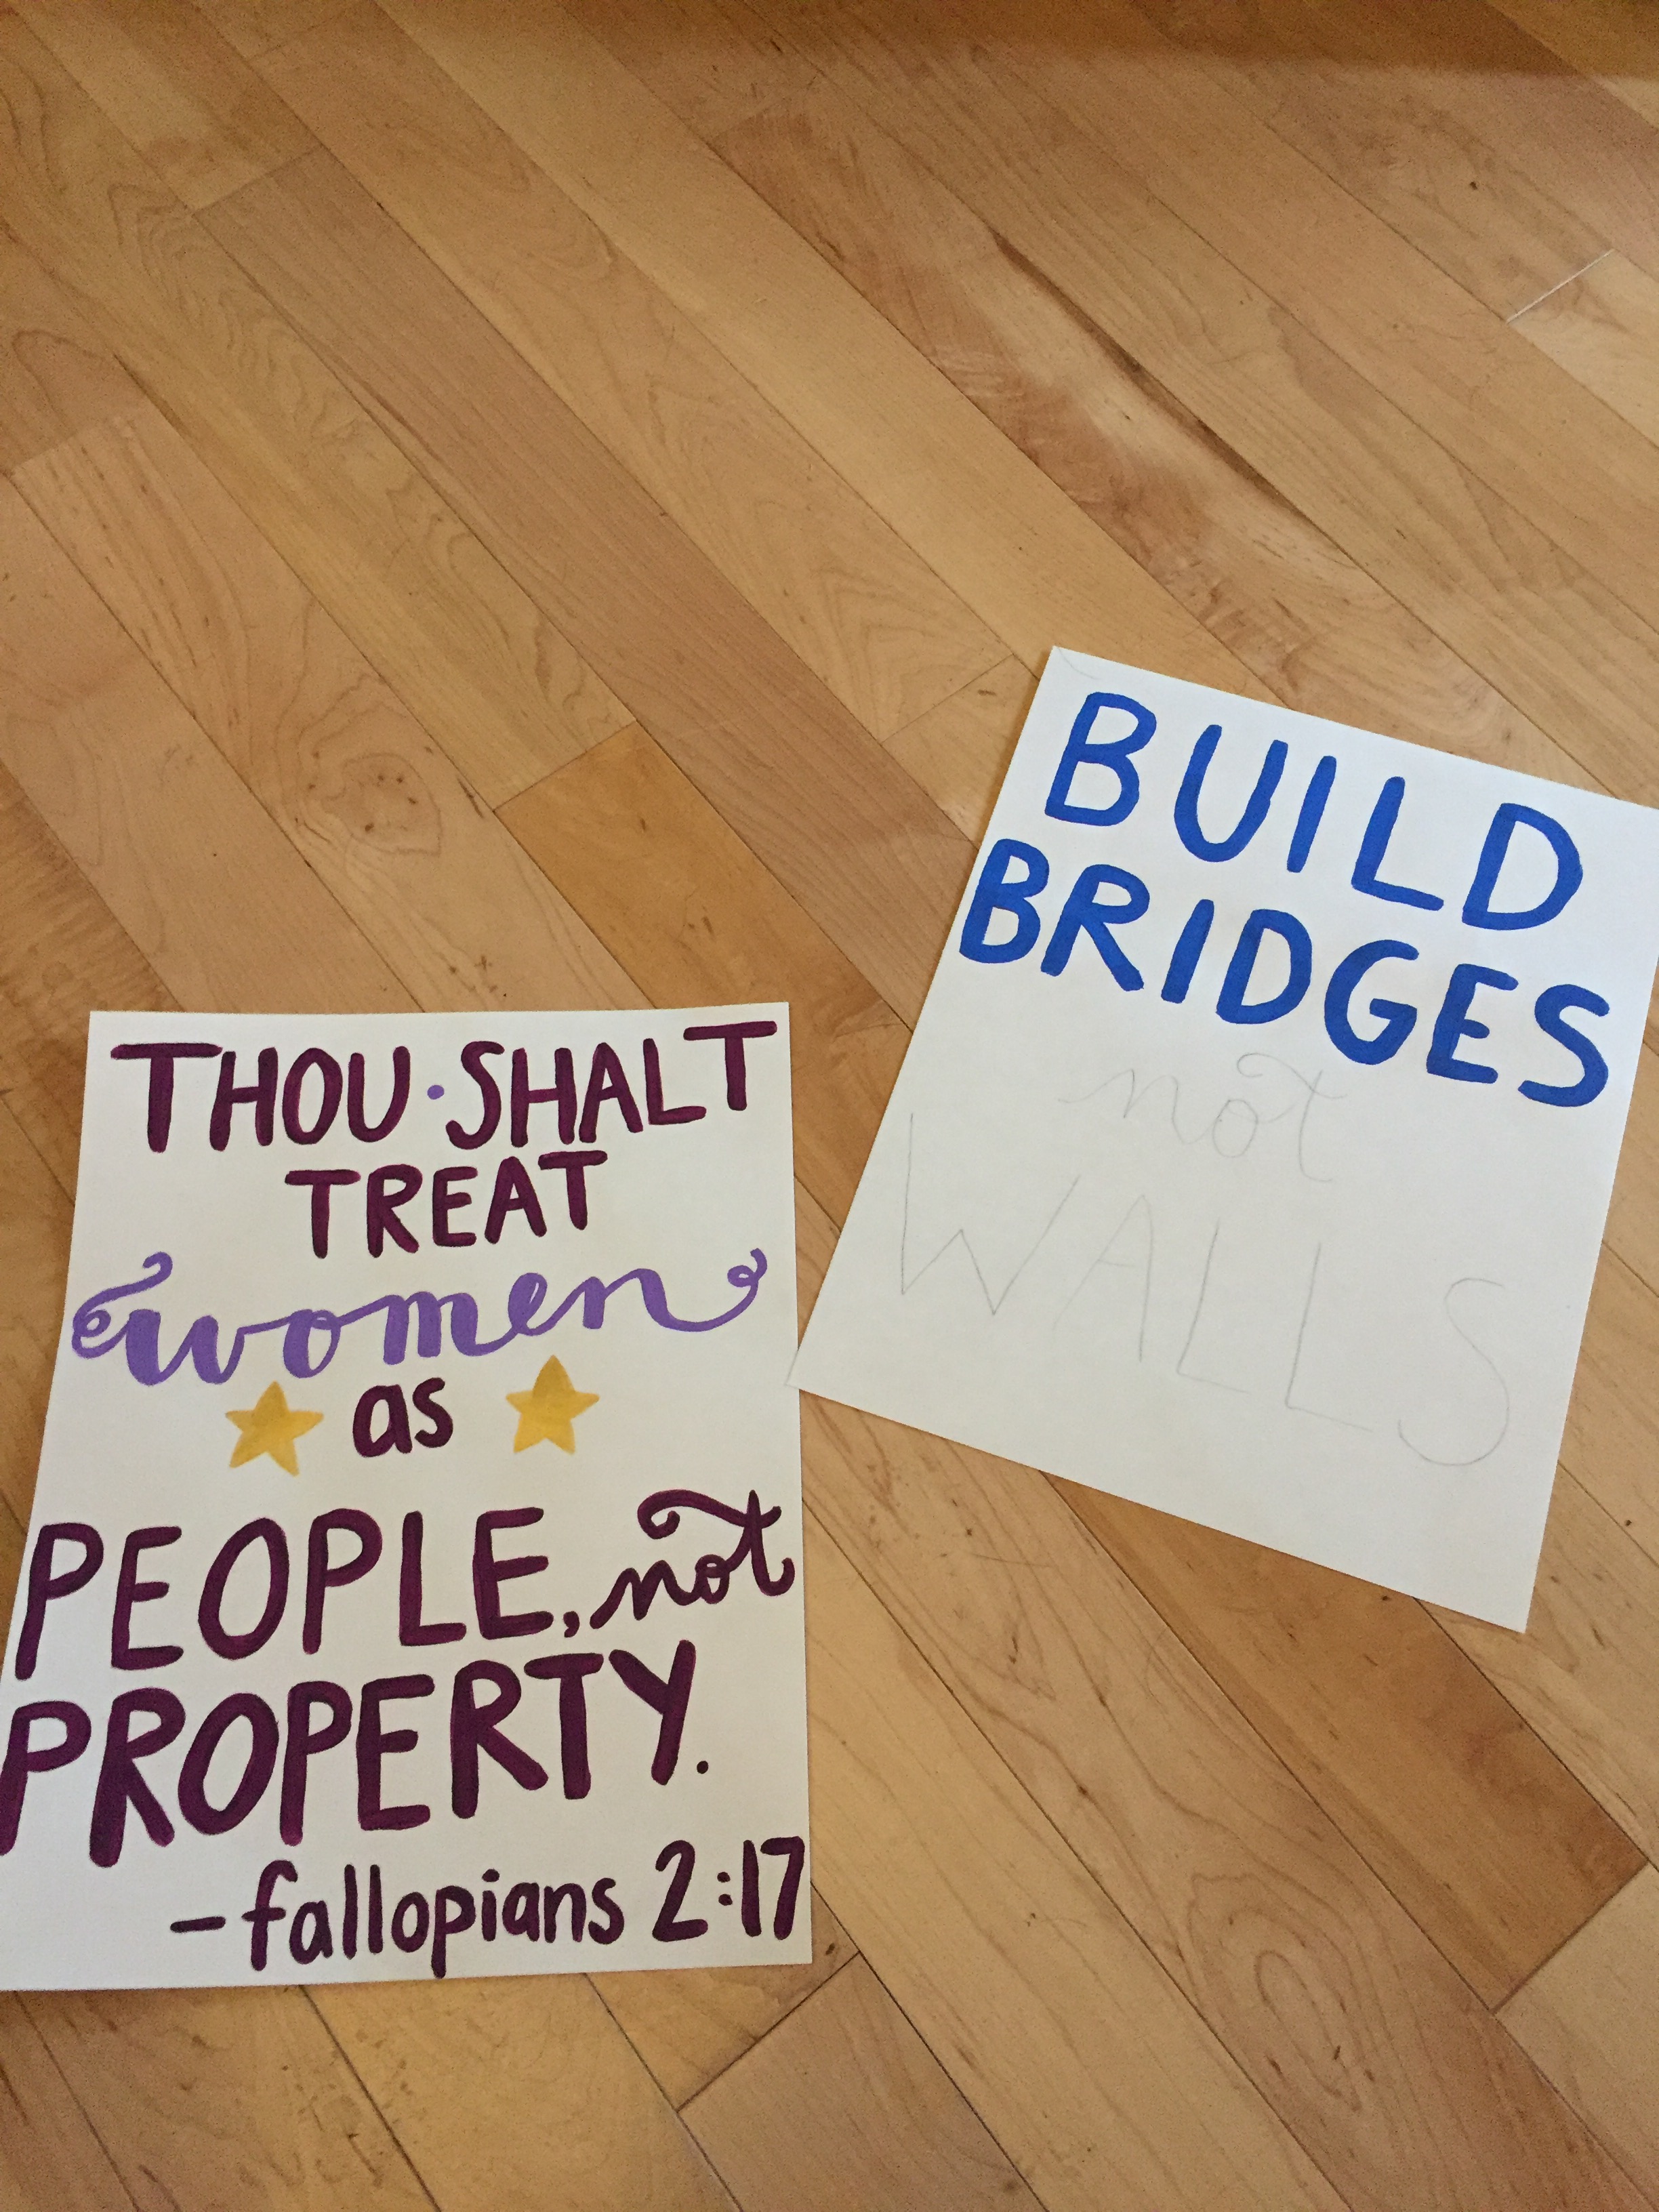 THOU·SHALT
TREAT
women
as
PEOPLE, not
PROPERTY.
-fallopians 2:17
BUILD
BRIDGES
not
WALLS